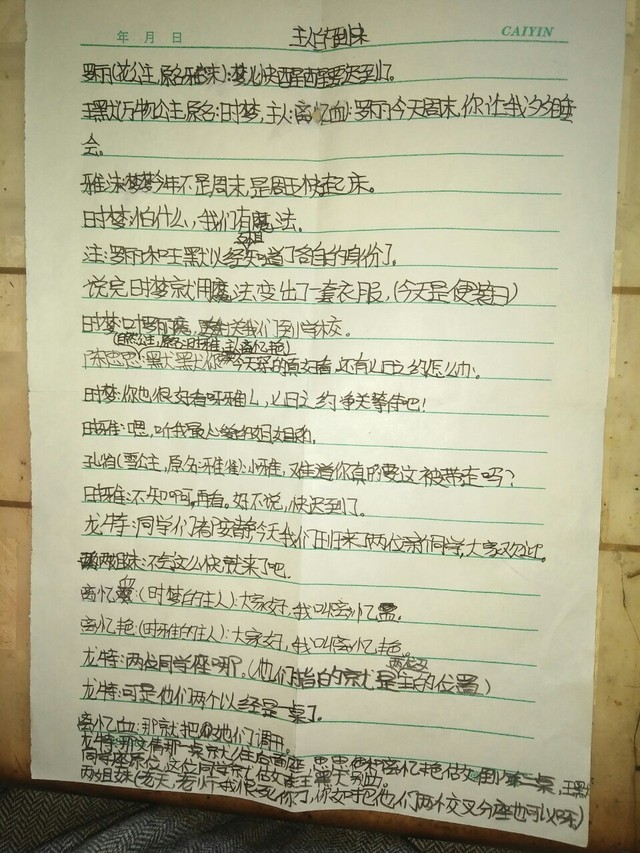 年 月 日
主人的到来
CAIYIN
罗丽(花公主,原名雅沫):梦儿快醒醒要迟到了。
王默(万物公主,原名:时梦,主人:离忆血):罗丽今天周末,你让我多睡
会。
雅沫:梦梦今年不是周末,是周五快起床。
时梦:怕什么,我们有魔法。
注:罗丽和王默以经知道了各自的身份了。
说完时梦就用魔法变出了一套衣服,(今天是便装日)
时梦:罗丽魔,送我们到学校。
(自然公主,原名:时雅,主人离忆艳)
陈思思:默默你今天穿的真好看,还有七日之约怎么办。
时梦:你也很好看呀雅儿,七日之约净关等待吧!
时雅:嗯,听我最人爱的姐姐的。
孔雀(雪公主,原名:雅雀):小雅,难道你真的要这被带走吗?
时雅:不知啊,再看。好不说,快迟到了。
龙特:同学们都安静今天我们班归来了两位新同学,大家欢迎。
两姐妹:不会这么快就来了吧。
离忆(时梦的主人):大家好,我叫离忆
离忆艳(时雅的主人):大家好,我叫离忆艳。
龙特:两位同学座哪?(他们指的就是两姐妹的位置)
龙特:可是他们两个以经是一桌了。
离忆血:那就把她们调开。
龙特:那 思思和离忆艳 倒第二桌,王默
同 这位同学
两姐妹(老天,老师我恨死你了,你如把他们两个交叉分座也可以呀)